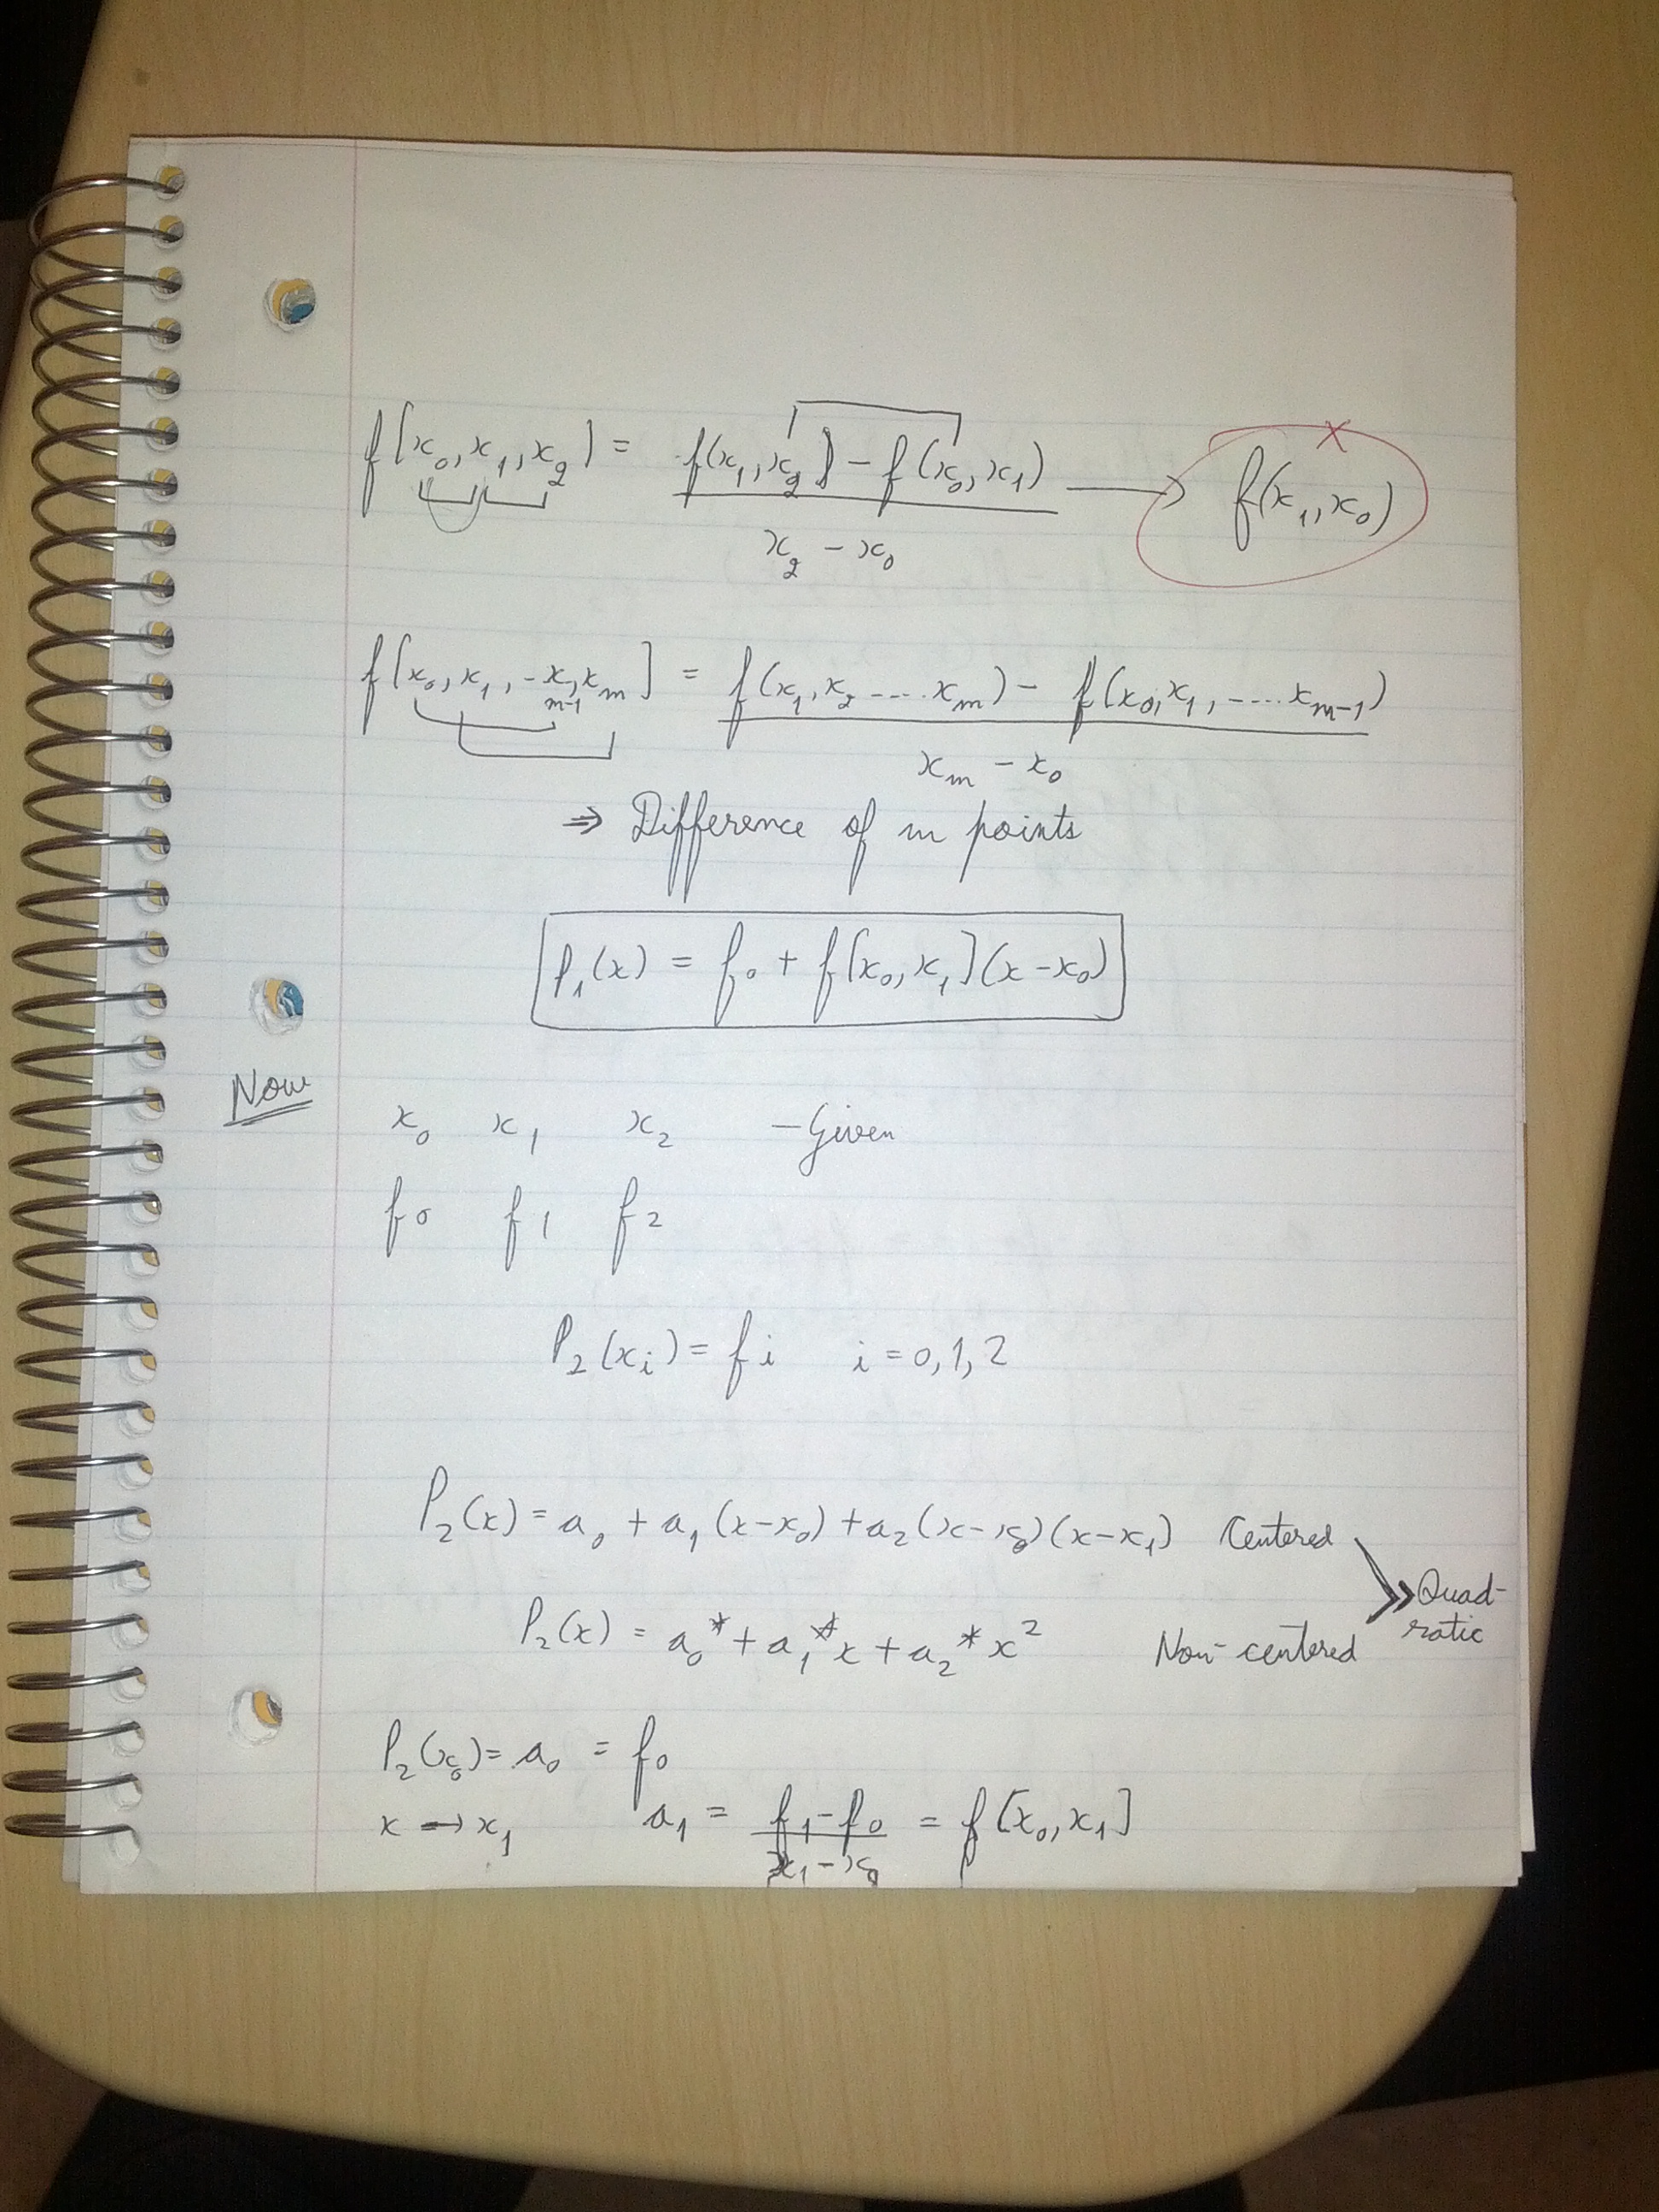 f[x₀, x₁, x₂] = f(x₁, x₂] - f(x₀, x₁) / x₂ - x₀ → f(x₁, x₀) X
f[x₀, x₁, - x_{m-1}, x_m] = f(x₁, x₂ ---- x_m) - f(x₀, x₁, ----- x_{m-1}) / x_m - x₀
⇒ Difference of m points
P₁(x) = f₀ + f[x₀, x₁](x-x₀)
Now
x₀ x₁ x₂ - Given
f₀ f₁ f₂
P₂(xᵢ) = fᵢ i = 0, 1, 2
P₂(x) = a₀ + a₁(x-x₀) + a₂(x-x₀)(x-x₁) Centered
Quad-
P₂(x) = a₀* + a₁*x + a₂*x² Non-centered
ratic
P₂(x₀) = a₀ = f₀
x → x₁ a₁ = f₁-f₀ / x₁-x₀ = f[x₀, x₁]